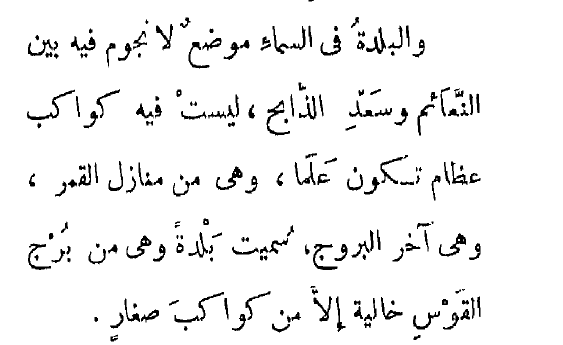 والبلدةُ فى السماء موضعٌ لا نجوم فيه بين
النَّعَائم وسَعْدِ الذّابح ، ليستْ فيه كواكب
عظام تـكون عَلَما ، وهى من منازل القمر ،
وهى آخر البروج، سُميت بَلْدةً وهى من بُرْج
القَوْسِ خالية إلاَّ من كواكبَ صغارٍ .